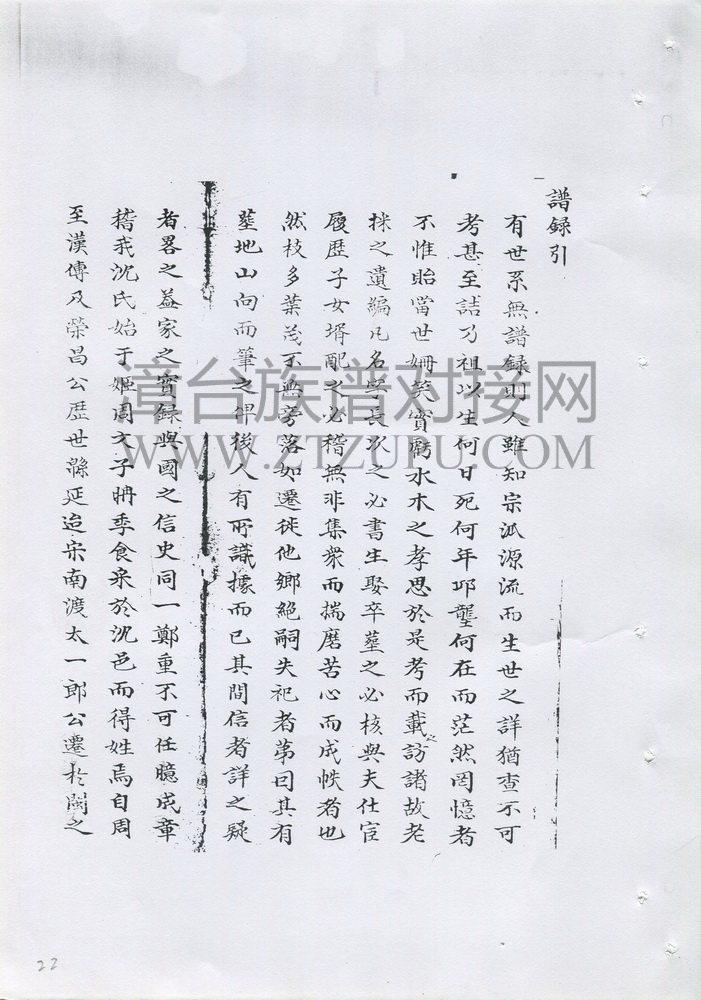 譜録引
有世系無譜録則人雖知宗派源流而生世之詳猶查不可
考甚至詰乃祖以生何日死何年邱壟何在而茫然罔憶者
不惟貽當世姍笑實虧水木之孝思於是考而載之訪諸故老
採之遺編凡名字長次之必書生娶卒塟之必核與夫仕宦
履歷子女壻配之必稽無非集衆而揣磨苦心而成帙者也
然枝多葉茂不無旁落如遷徙他鄉絕嗣失祀者第曰其有
塟地山向而筆之俾後人有所識據而已其間信者詳之疑
者畧之益家之實録與國之信史同一鄭重不可任臆成章
稽我沈氏始于姬周文子聃季食采於沈邑而得姓焉自周
至漢傳及榮昌公歷世緜延迨宋南渡太一郎公遷於閩之
漳台族谱对接网
WWW.ZTZUPU.COM
22